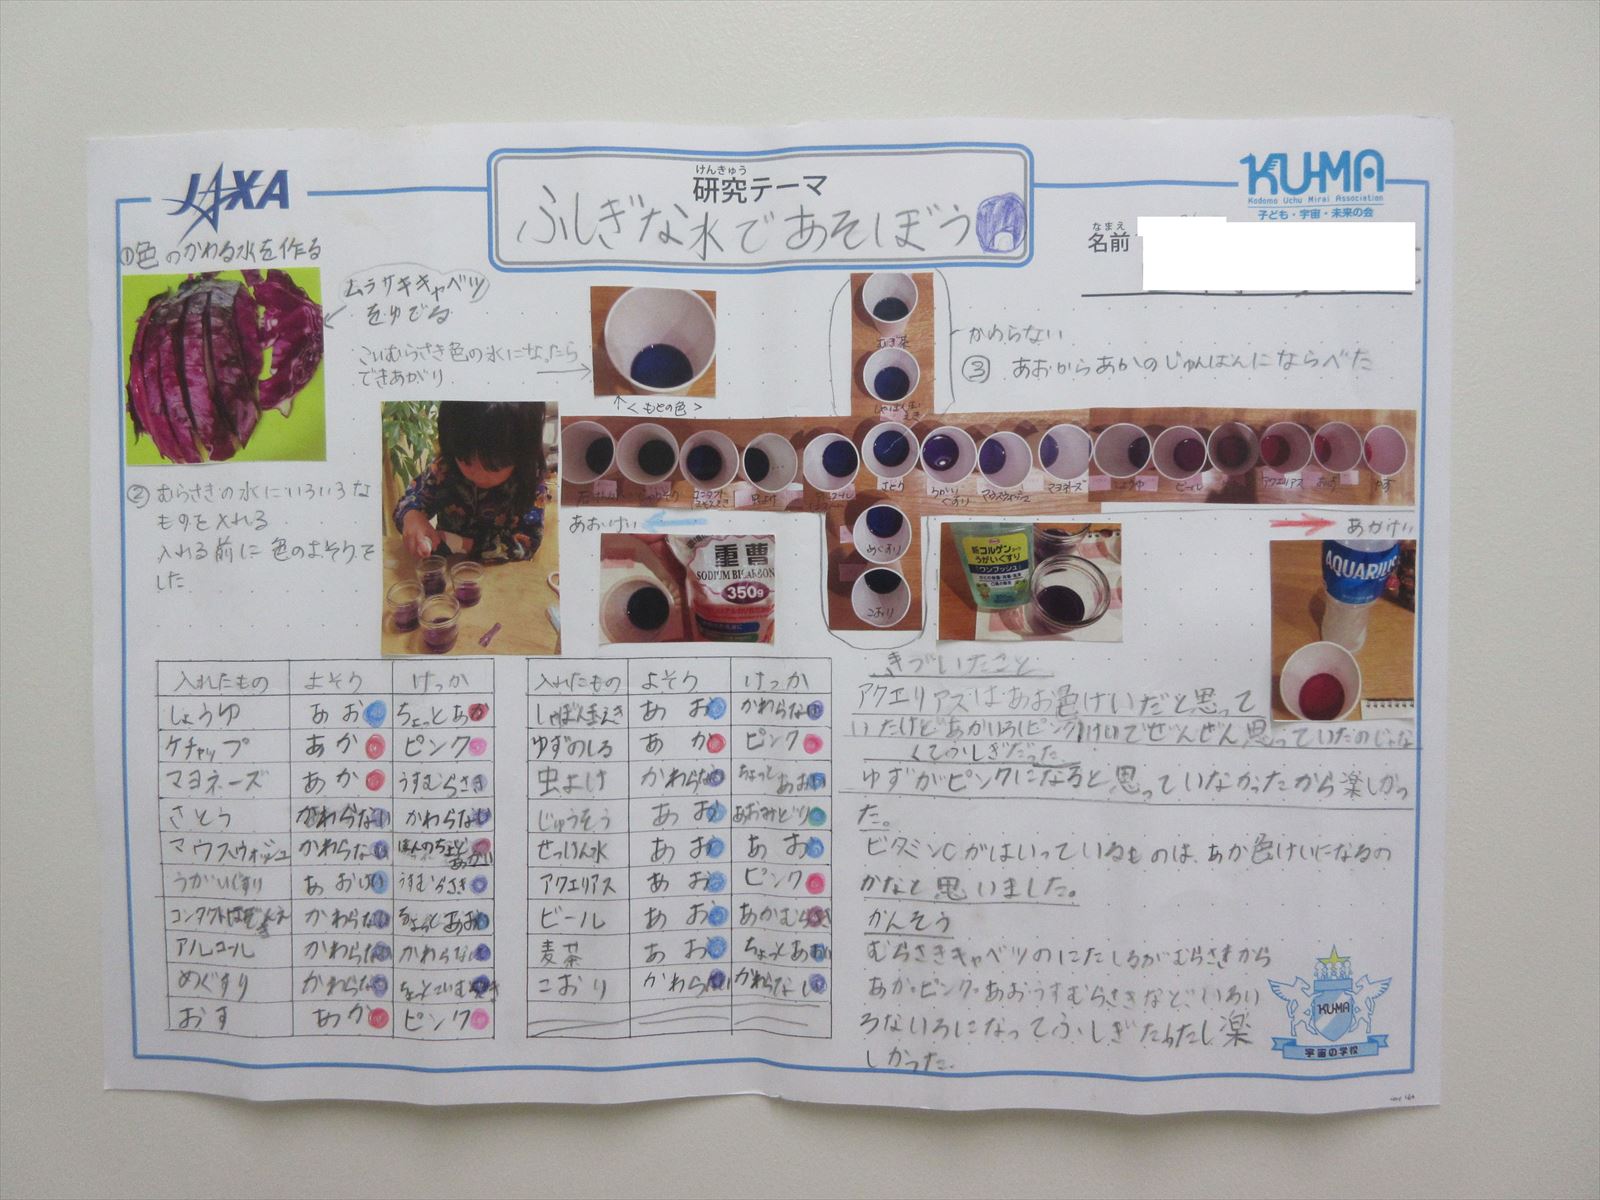 JAXA
けんきゅう
研究テーマ
ふしぎな水であそぼう
KU-MA
Kodomo Uchu Mirai Association
子ども・宇宙・未来の会
なまえ
名前
①色のかわる水を作る
ムラサキキャベツ
をゆでる
こいむらさき色の水になったら
できあがり
<もとの色>
②むらさきの水にいろいろな
ものを入れる
入れる前に色のよそうを
した
かわらない
③ あおからあかのじゅんばんにならべた
むぎ茶
しゃぼん玉えき
虫よけ
アルコール
さとう
うがいぐすり
マウスウォッシュ
マヨネーズ
しょうゆ
ビール
アクエリアス
おす
ゆず
めぐすり
こおり
あおけい
あかけい
重曹
SODIUM BICARBON
350g
新コルゲンコーワ
うがいぐすり
「ワンプッシュ」
AQUARIUS
入れたもの よそう けっか
しょうゆ あお ちょっとあか
ケチャップ あか ピンク
マヨネーズ あか うすむらさき
さとう かわらない かわらない
マウスウォッシュ かわらない ほんのちょとあかい
うがいぐすり あおけい うすむらさき
かわらない ちょっとあお
アルコール かわらない かわらない
めぐすり かわらない
おす あか ピンク
入れたもの よそう けっか
しゃぼん玉えき あお かわらない
ゆずのしる あか ピンク
虫よけ かわらない ちょっとあおい
じゅうそう あお あおみどり
せっけん水 あお あお
アクエリアス あお ピンク
ビール あお あかむらさき
麦茶 あお ちょっとあおい
こおり かわらない かわらない
きづいたこと
アクエリアスはあお色けいだと思って
いたけどあかいろ(ピンク)けいでぜんぜん思っていたのじゃな
くてふしぎだった。
ゆずがピンクになると思っていなかったから楽しかっ
た。
ビタミンCがはいっているものは、あか色けいになるの
かなと思いました。
かんそう
むらさきキャベツのにたしるがむらさきから
あか・ピンク・あおうすむらさきなどいろい
ろないろになってふしぎだったし楽
しかった。
KU-MA
宇宙の学校